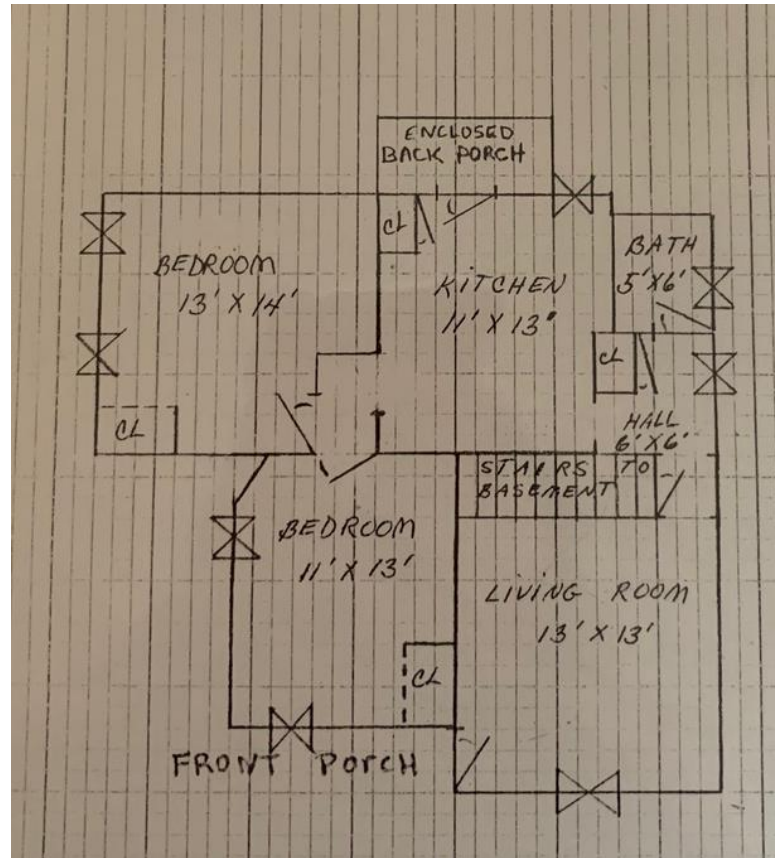 ENCLOSED
BACK PORCH
CL
BEDROOM
13' X 14'
KITCHEN
11' X 13"
BATH
5' X 6'
CL
CL
HALL
6' X 6'
STAIRS TO
BASEMENT
BEDROOM
11' X 13'
LIVING ROOM
13' X 13'
CL
FRONT PORCH